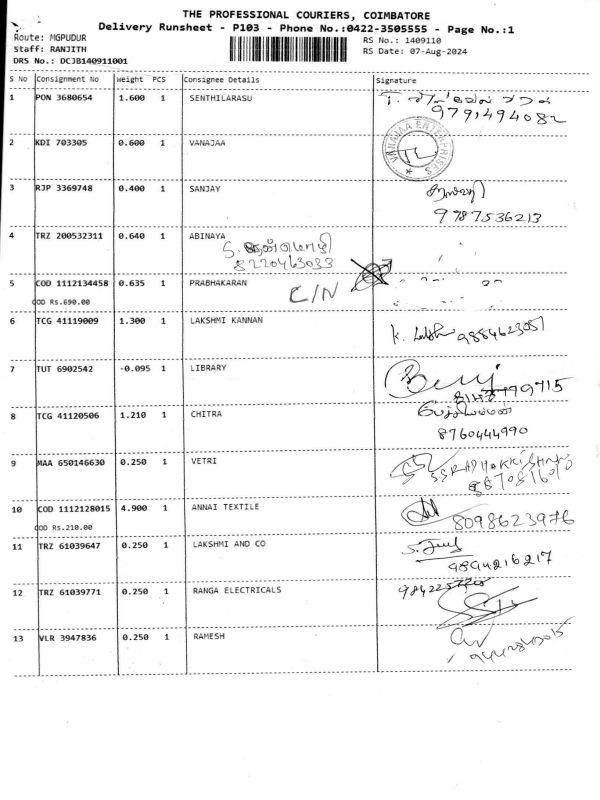 THE PROFESSIONAL COURIERS, COIMBATORE
Delivery Runsheet - P103 - Phone No.:0422-3505555 - Page No.:1
Route: MGPUDUR
RS No.: 1409110
Staff: RANJITH
RS Date: 07-Aug-2024
DRS No.: DCJB140911001
S No Consignment No Weight PCS Consignee Details Signature
1 PON 3680654 1.600 1 SENTHILARASU
9791494082
2 KDI 703305 0.600 1 VANAJAA
VANAJAA ENTERPRISES
3 RJP 3369748 0.400 1 SANJAY
9787536213
4 TRZ 200532311 0.640 1 ABINAYA
8220463033
5 COD 1112134458 0.635 1 PRABHAKARAN
C/N
COD Rs.690.00
6 TCG 41119009 1.300 1 LAKSHMI KANNAN
9884623057
7 TUT 6902542 -0.095 1 LIBRARY
8 TCG 41120506 1.210 1 CHITRA
8760444990
9 MAA 650146630 0.250 1 VETRI
10 COD 1112128015 4.900 1 ANNAI TEXTILE
8098623976
COD Rs.210.00
11 TRZ 61039647 0.250 1 LAKSHMI AND CO
9894216217
12 TRZ 61039771 0.250 1 RANGA ELECTRICALS
13 VLR 3947836 0.250 1 RAMESH